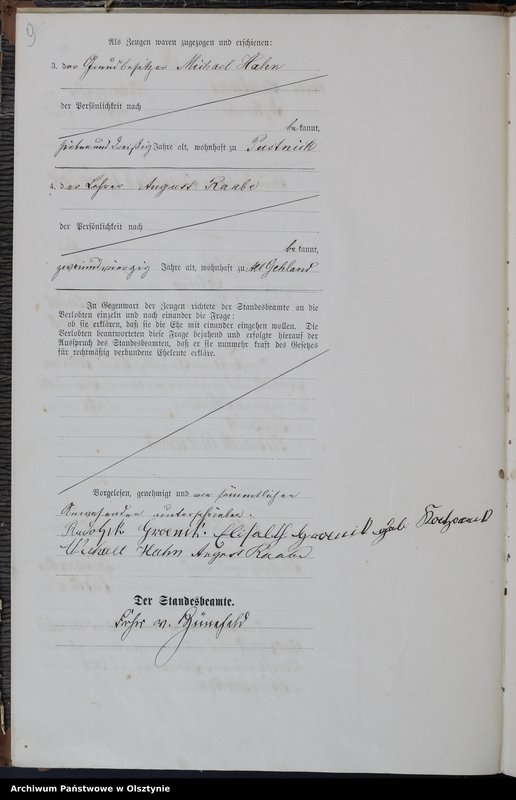 9
Als Zeugen waren zugezogen und erschienen:
3. der Grundbesitzer Michael Hahn
der Persönlichkeit nach
bekannt,
siebenunddreißig Jahre alt, wohnhaft zu Pustnick
4. der Lehrer August Raabe
der Persönlichkeit nach
bekannt,
zweiundvierzig Jahre alt, wohnhaft zu Alt Gehland
In Gegenwart der Zeugen richtete der Standesbeamte an die
Verlobten einzeln und nach einander die Frage:
ob sie erklären, daß sie die Ehe mit einander eingehen wollen. Die
Verlobten beantworteten diese Frage bejahend und erfolgte hierauf der
Ausspruch des Standesbeamten, daß er sie nunmehr kraft des Gesetzes
für rechtmäßig verbundene Eheleute erkläre.
Vorgelesen, genehmigt und von sämmtlichen
Anwesenden unterschrieben.
Groenik. Elisabeth geb
Michael Hahn August Raabe
Der Standesbeamte.
v.
Archiwum Państwowe w Olsztynie